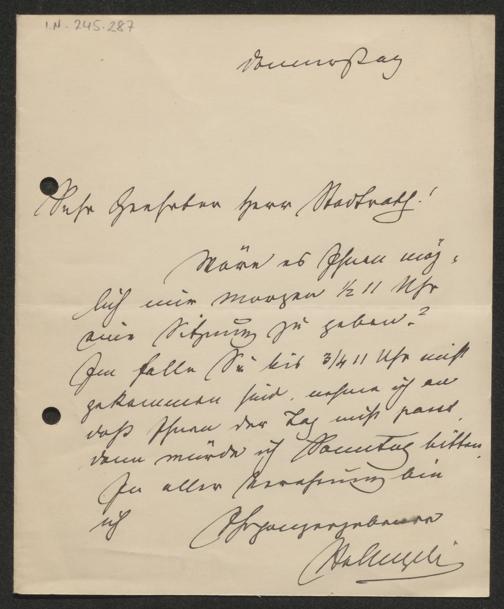 I.N. 245.287
Donnerstag
Sehr Geehrter Herr Stadtrath!
Wäre es Ihnen mög-
lich mir morgen ½ 11 Uhr
eine Sitzung zu geben?
Im falle Sie bis 3/4 11 Uhr nicht
gekommen sind, nehme ich an
daß Ihnen der Tag nicht passt,
dann würde ich Sonntag bitten.
In aller Verehrung bin
ich Ihr ganz ergebener